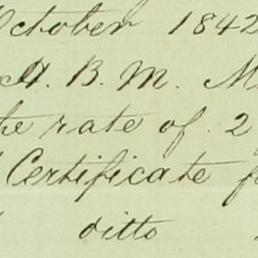 October 1842
A. B. M. M
the rate of 2
Certificate f
ditto